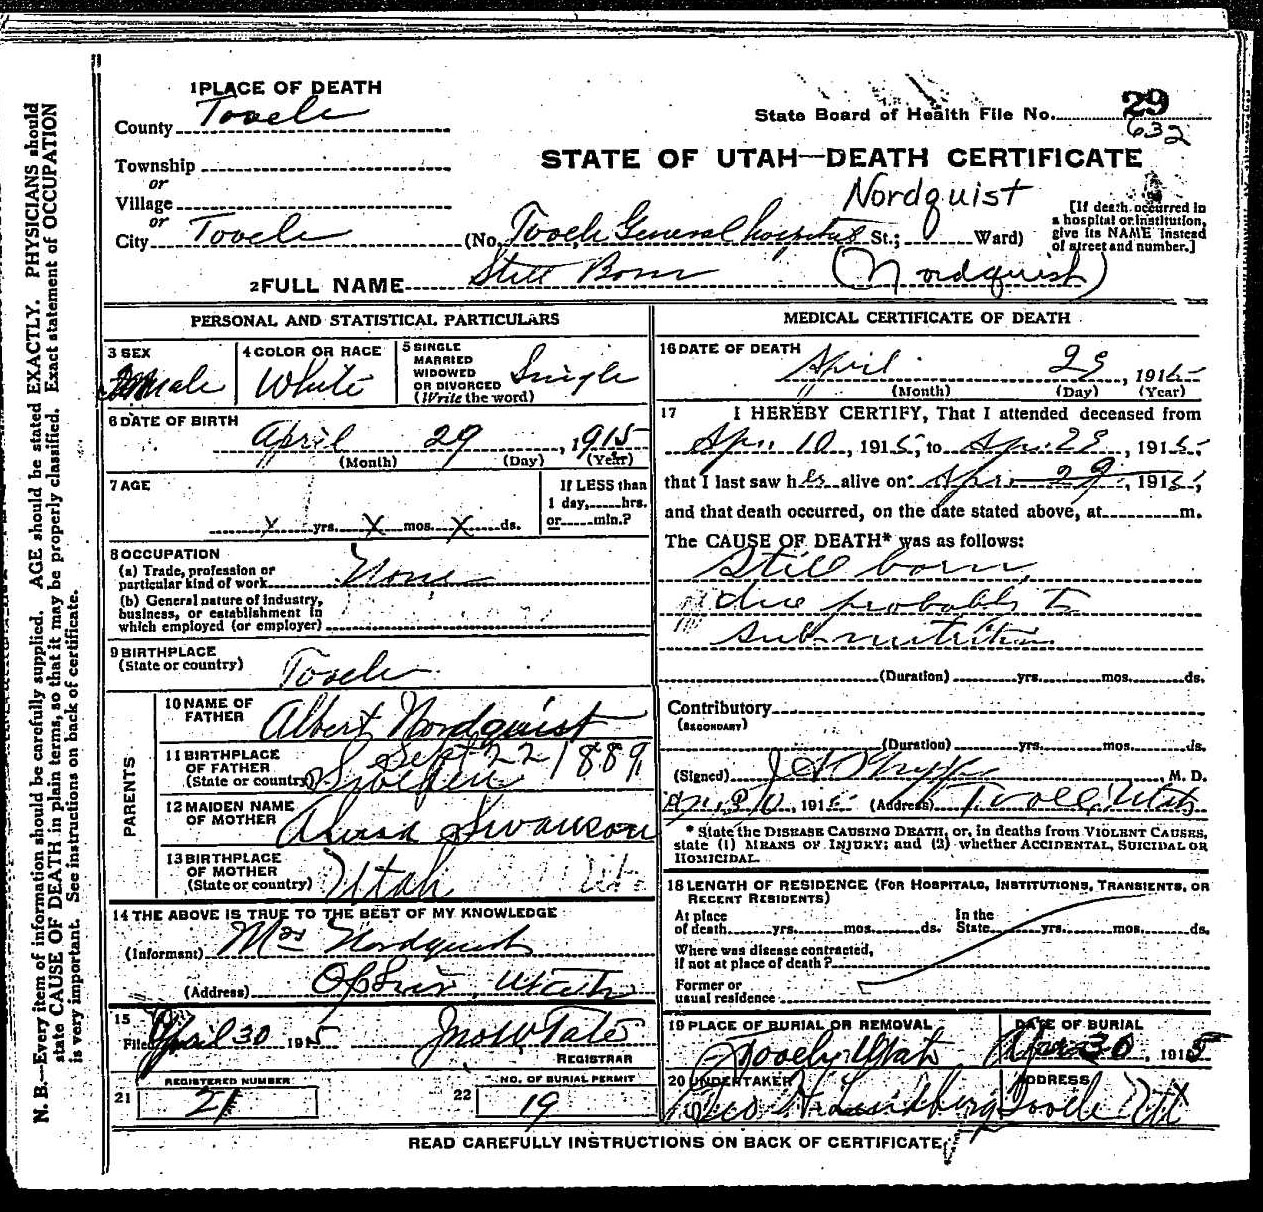 1 PLACE OF DEATH
County Tooele
State Board of Health File No. 29
632
Township
or
Village
or
City Tooele
STATE OF UTAH—DEATH CERTIFICATE
Nordquist
(No. Tooele General hospital St.; Ward)
[If death occurred in
a hospital or institution,
give its NAME instead
of street and number.]
2 FULL NAME Still Born (Nordquist)
PERSONAL AND STATISTICAL PARTICULARS
3 SEX
Female
4 COLOR OR RACE
White
5 SINGLE
MARRIED
WIDOWED
OR DIVORCED
(Write the word)
Single
6 DATE OF BIRTH
April 29, 1915
(Month) (Day) (Year)
7 AGE
X yrs. X mos. X ds.
If LESS than
1 day, hrs.
or min.?
8 OCCUPATION
(a) Trade, profession or
particular kind of work None
(b) General nature of industry,
business, or establishment in
which employed (or employer)
9 BIRTHPLACE
(State or country) Tooele
PARENTS
10 NAME OF
FATHER
Albert Nordquist
11 BIRTHPLACE
OF FATHER
(State or country)
Sept 22 1889
Sweden
12 MAIDEN NAME
OF MOTHER
Swanson
13 BIRTHPLACE
OF MOTHER
(State or country)
Utah
14 THE ABOVE IS TRUE TO THE BEST OF MY KNOWLEDGE
(Informant) Mrs Nordquist
(Address) Ophir, Utah
15
Filed April 30 1915 Jno W Tate
REGISTRAR
REGISTERED NUMBER
21 21
NO. OF BURIAL PERMIT
22 19
MEDICAL CERTIFICATE OF DEATH
16 DATE OF DEATH
April 29, 1915
(Month) (Day) (Year)
17 I HEREBY CERTIFY, That I attended deceased from
Apr. 10, 1915, to Apr. 29, 1915,
that I last saw her alive on Apr. 29, 1915,
and that death occurred, on the date stated above, at m.
The CAUSE OF DEATH* was as follows:
Still born
due probably to
sub-nutrition
(Duration) yrs. mos. ds.
Contributory
(SECONDARY)
(Duration) yrs. mos. ds.
(Signed) M. D.
1915 (Address) Tooele, Utah
* State the DISEASE CAUSING DEATH, or, in deaths from VIOLENT CAUSES,
state (1) MEANS OF INJURY; and (2) whether ACCIDENTAL, SUICIDAL OR
HOMICIDAL.
18 LENGTH OF RESIDENCE (FOR HOSPITALS, INSTITUTIONS, TRANSIENTS, OR
RECENT RESIDENTS)
At place
of death yrs. mos. ds.
In the
State yrs. mos. ds.
Where was disease contracted,
if not at place of death?
Former or
usual residence
19 PLACE OF BURIAL OR REMOVAL
Tooele, Utah
DATE OF BURIAL
Apr 30, 1915
20 UNDERTAKER
Lindberg
ADDRESS
Tooele Utt
READ CAREFULLY INSTRUCTIONS ON BACK OF CERTIFICATE
N. B.—Every item of information should be carefully supplied. AGE should be stated EXACTLY. PHYSICIANS should
state CAUSE OF DEATH in plain terms, so that it may be properly classified. Exact statement of OCCUPATION
is very important. See instructions on back of certificate.